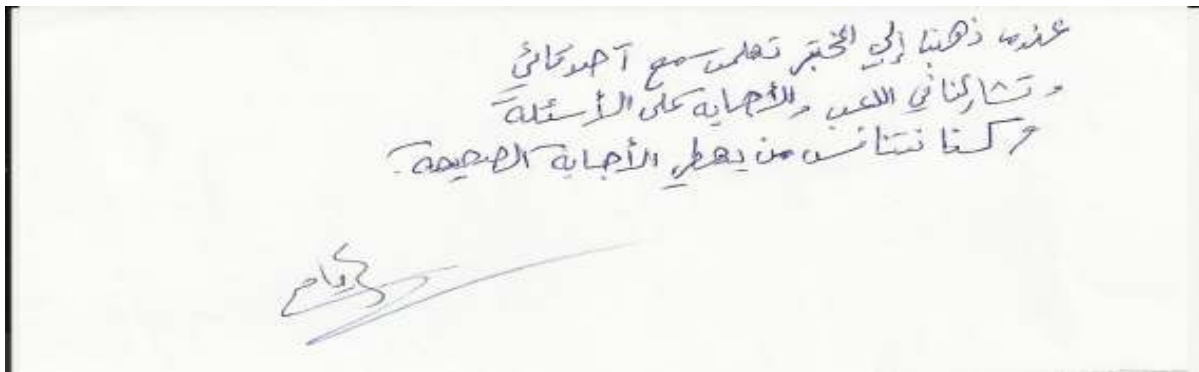 عندما ذهبنا إلي المختبر تعلمت مع أصدقائي
وتشاركنا في اللعب والأجابه على الأسئلة
وكنا نتنافس من يعطي الأجابة الصحيحة.